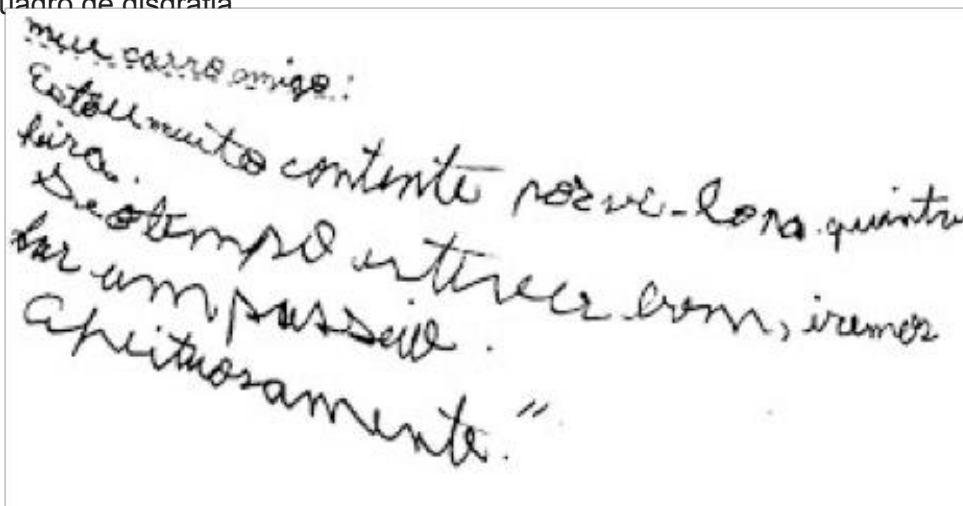 uadro de disgrafia
meu carro amigo:
Estou muito contente por vê-lo na quinta
feira.
Se o tempo estiver bom, iremos
dar um passeio.
Afeituosamente."